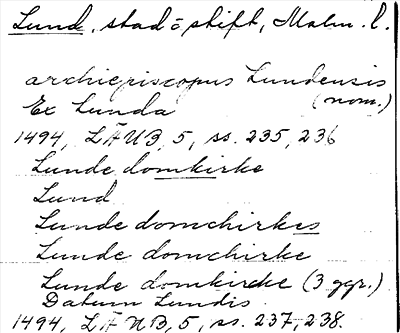 Lund, stad o stift, Malm. l.
archiepiscopus Lundensis
(nom.)
Ex Lunda
1494, LÄUB, 5, ss. 235, 236
Lunde domkirke
Lund
Lunde domchirkes
Lunde domchirke
Lunde domkircke (3 ggr.)
Datum Lundis
1494, LÄUB, 5, ss. 237, 238.